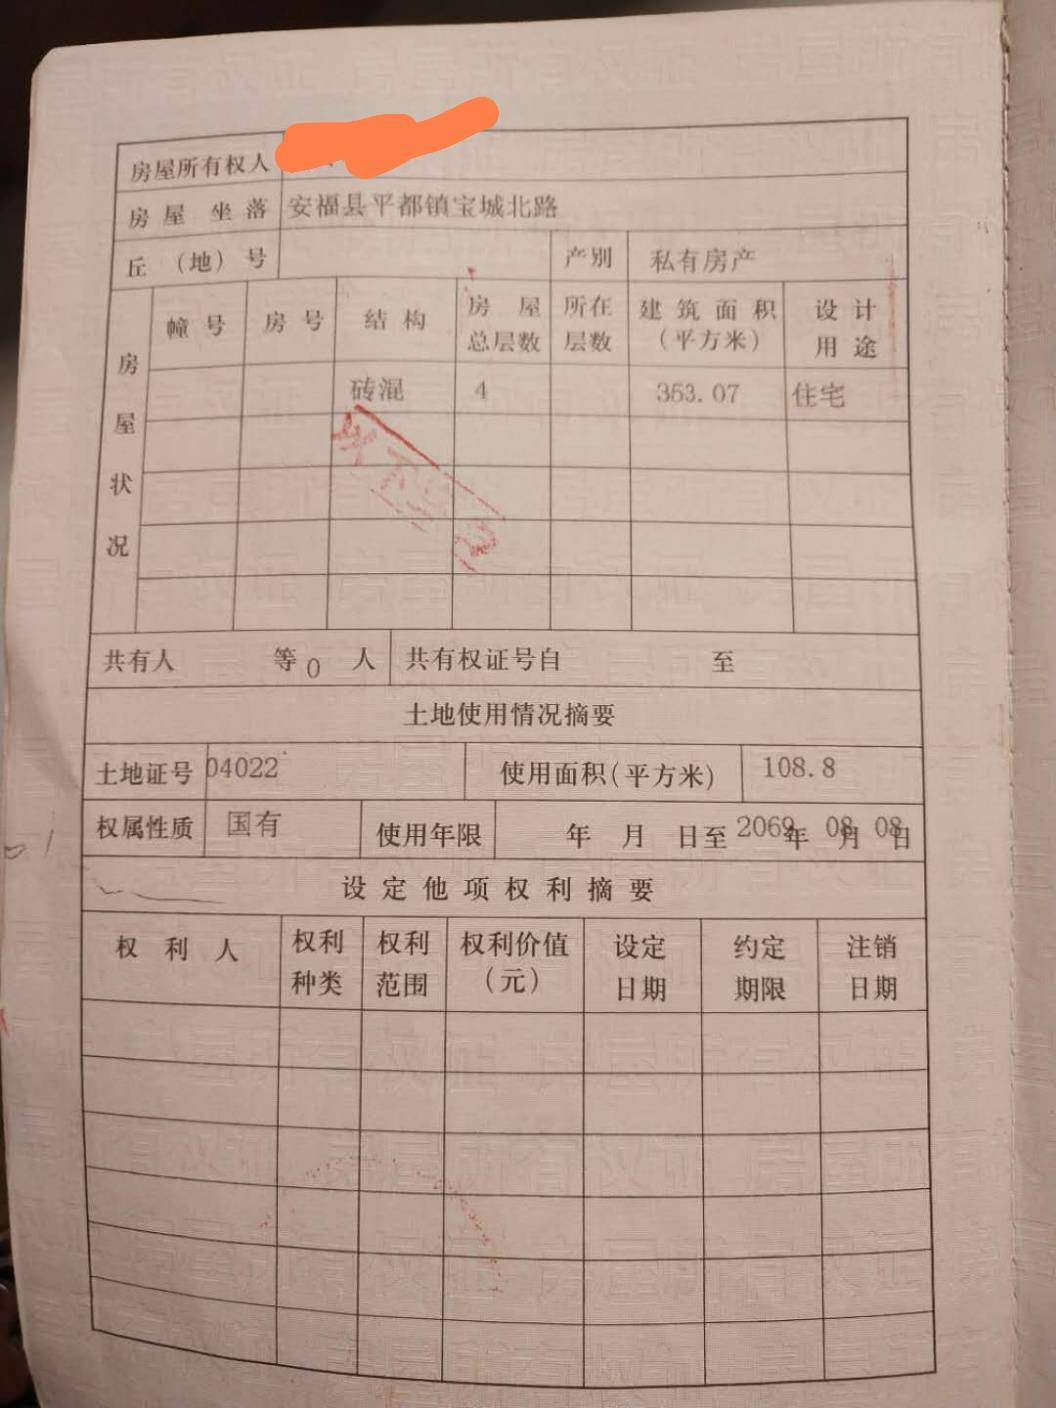 房屋所有权人
房屋坐落 安福县平都镇宝城北路
丘（地）号 产别 私有房产
房屋状况
幢号 房号 结构 房屋总层数 所在层数 建筑面积（平方米） 设计用途
砖混 4 353.07 住宅
共有人 等0人 共有权证号自 至
土地使用情况摘要
土地证号 04022 使用面积(平方米) 108.8
权属性质 国有 使用年限 年 月 日至2069年08月08日
设定他项权利摘要
权利人 权利种类 权利范围 权利价值（元） 设定日期 约定期限 注销日期